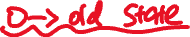 0--> old state